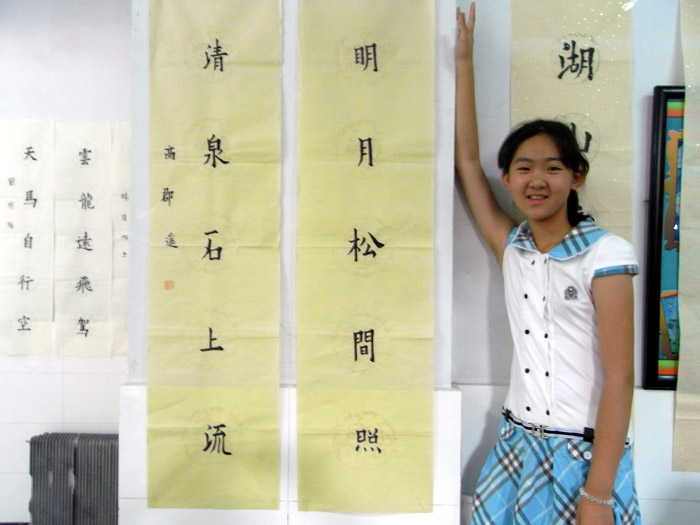 湖山
明月松間照
清泉石上流
高郡遥
雲龍遠飛駕
天馬自行空